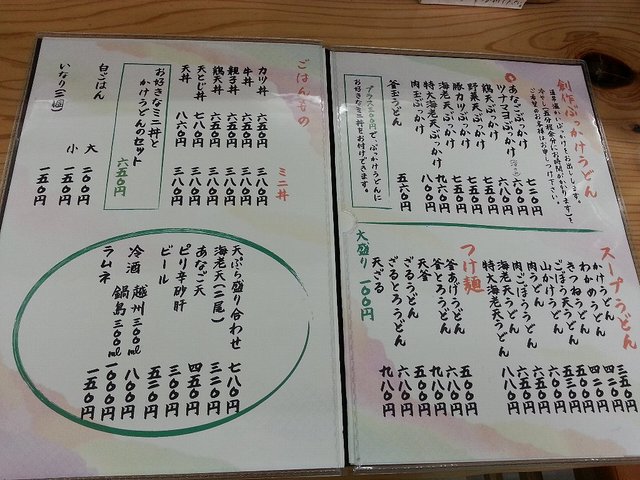 創作ぶっかけうどん
通常温かいぶっかけをお出しします。
冷やし(五分程余分にお時間がかかります)を
ご希望のお客様はお申しつけ下さい。
あなごぶっかけ 七二〇円
ツナマヨぶっかけ 六八〇円
鶏天ぶっかけ
野菜天ぶっかけ 七五〇円
豚カツぶっかけ 七五〇円
海老天ぶっかけ 七五〇円
特大海老天ぶっかけ 九六〇円
肉玉ぶっかけ 八〇〇円
釜玉うどん 五六〇円
プラス三〇〇円で、ぶっかけうどんに
お好きなミニ丼をお付けできます。
スープうどん
かけうどん 三五〇円
わかめうどん 四二〇円
きつねうどん 四二〇円
ごぼう天うどん 五三〇円
山かけうどん 五五〇円
肉うどん 六〇〇円
肉ごぼううどん
海老天うどん
特大海老天うどん 八八〇円
つけ麺
釜あげうどん 五〇〇円
釜とろうどん 六八〇円
天釜 九八〇円
ざるうどん 五〇〇円
ざるとろうどん 六八〇円
天ざる 九八〇円
大盛り 一〇〇円
ごはんもの
ミニ丼
カツ丼 六五〇円 三八〇円
牛丼 六五〇円 三八〇円
親子丼 六五〇円 三八〇円
鶏天丼 六五〇円 三八〇円
天とじ丼 七八〇円 三八〇円
天丼 八六〇円 三八〇円
お好きなミニ丼と
かけうどんのセット
六五〇円
白ごはん 大 二〇〇円
小 一五〇円
いなり(二個) 一五〇円
天ぷら盛り合わせ 七八〇円
海老天(二尾) 三二〇円
あなご天 四五〇円
ピリ辛砂肝 三〇〇円
ビール 五五〇円
冷酒 越州 三〇〇ml 八〇〇円
鍋島 三〇〇ml 一〇〇〇円
ラムネ 一五〇円